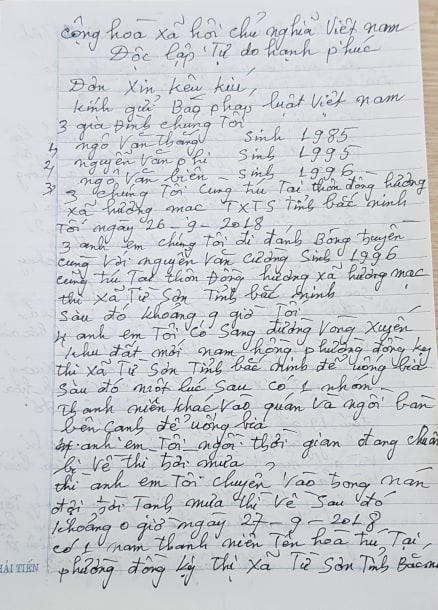 cộng hoà xã hội chủ nghĩa Việt nam
Độc lập Tự do hạnh phúc
Đơn Xin kêu kíu,
kính gửi Báo pháp luật Việt nam
3 gia Đình chúng Tôi
1, ngô Văn Thang Sinh 1985
2, nguyễn Văn phi Sinh 1995
3, ngô Văn biên - Sinh 1996
3 chúng Tôi Cùng trú Tại thôn đông hương
xã hương mạc TXTS Tỉnh bắc ninh
Tối ngày 26-9-2018
3 anh em chúng Tôi đi đánh Bóng truyền
cùng Với nguyễn Văn cường Sinh 1996
cùng trú Tại thôn Đông hương xã hương mạc
thị xã Từ Sơn Tỉnh bắc ninh
Sau đó khoảng 9 giờ Tối
4 anh em Tôi Có Sang đường Vòng Xuyến
khu đất mới nam hồng phường đồng kỵ
thị xã Từ Sơn Tỉnh bắc ninh để uống bia
Sau đó một lúc sau có 1 nhóm
Thanh niên khác Vào quán Và ngồi bàn
bên cạnh để uống bia
anh em Tôi ngồi thời gian đang chuẩn
bị Về thì trời mưa
thì anh em Tôi chuyển Vào trong
đợi trời Tạnh mưa thì Về Sau đó
khoảng 0 giờ ngày 27-9-2018
có 1 nam thanh niên Tên hoa trú Tại
phường đồng kỵ thị xã Từ Sơn Tỉnh Bắc
HẢI TIẾN